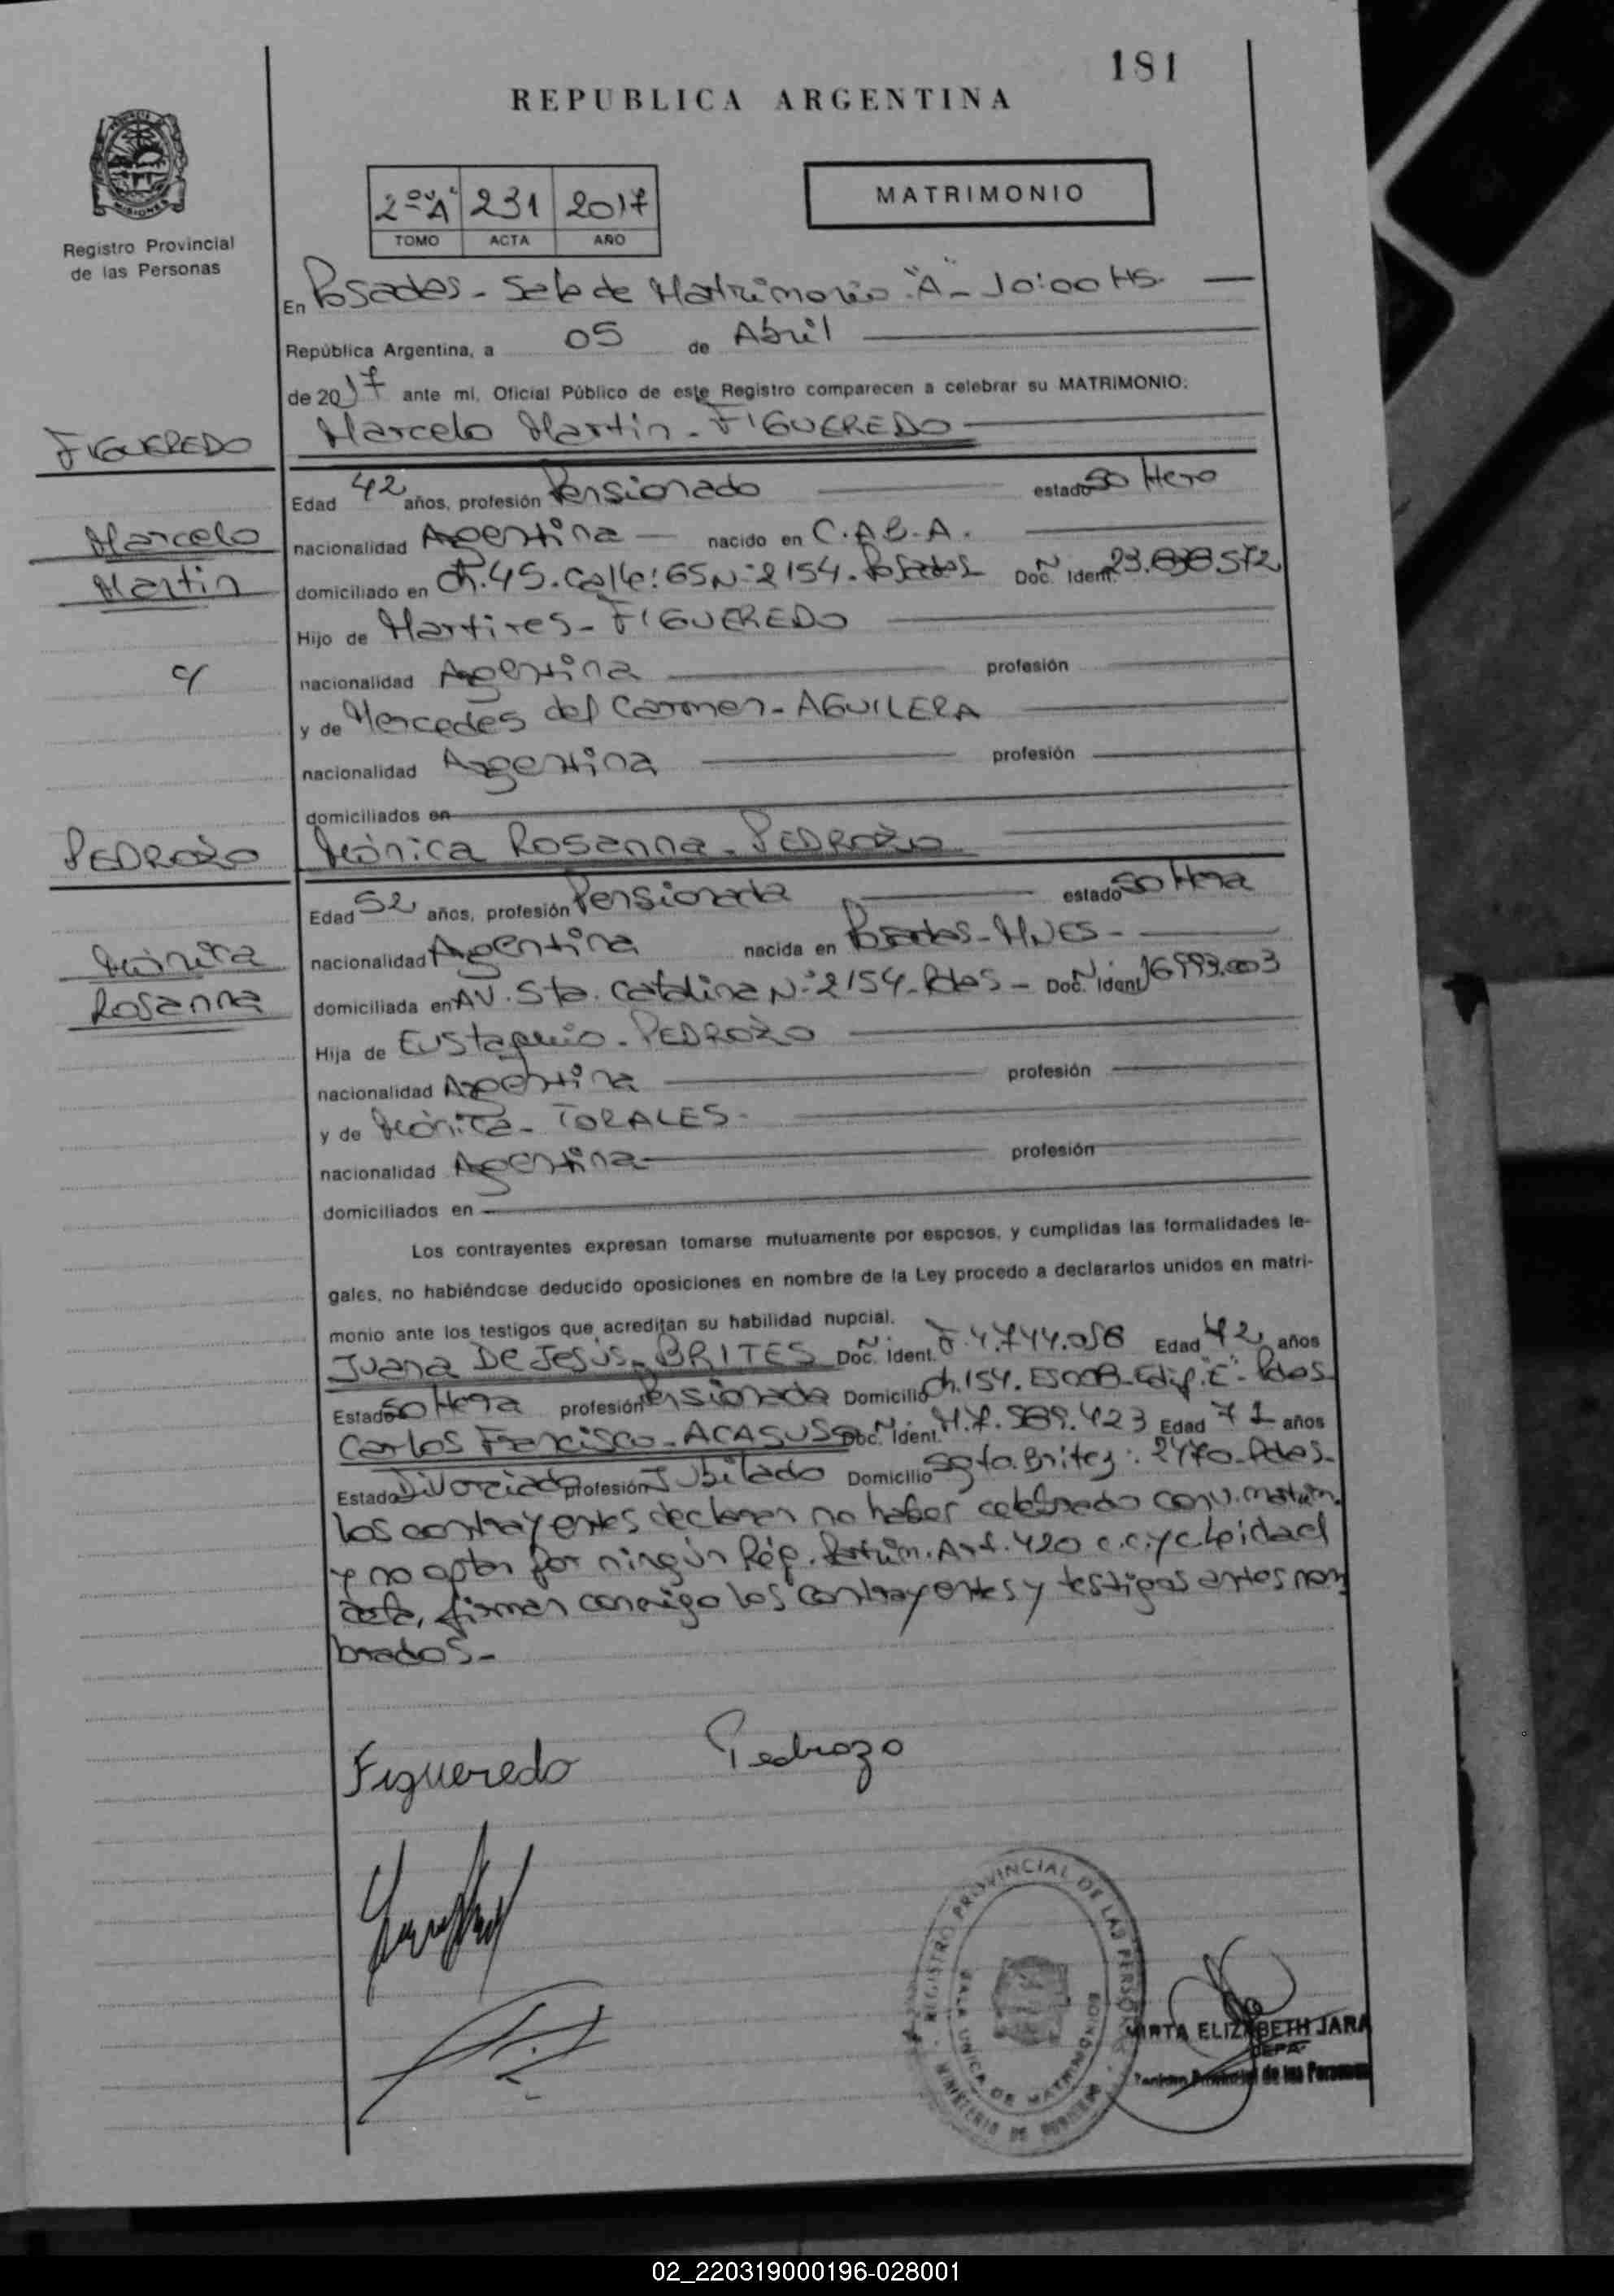 181
REPUBLICA ARGENTINA
MISIONES
Registro Provincial
de las Personas
2º "A" 231 2017
TOMO ACTA AÑO
MATRIMONIO
En Posadas - Sala de Matrimonio "A" - 10:00 Hs.
República Argentina, a 05 de Abril
de 2017 ante mí, Oficial Público de este Registro comparecen a celebrar su MATRIMONIO:
FIGUEREDO
Marcelo Martin - FIGUEREDO
Edad 42 años, profesión Pensionado estado Soltero
Marcelo
nacionalidad Argentina nacido en C.A.B.A.
Martin
domiciliado en Ch. 45. Calle: 65 Nº 2154. Posadas Doc. Ident. Nº 23.838.572
Hijo de Martires - FIGUEREDO
c/
nacionalidad Argentina profesión
y de Mercedes del Carmen - AGUILERA
nacionalidad Argentina profesión
domiciliados en
PEDROZO
Mónica Rosanna - PEDROZO
Edad 52 años, profesión Pensionada estado Soltera
Mónica
nacionalidad Argentina nacida en Posadas - MNES -
Rosanna
domiciliada en AV. Sta. Catalina Nº 2154 - Pdas - Doc. Ident. Nº 16.993.003
Hija de Eustaquio - PEDROZO
nacionalidad Argentina profesión
y de Mónica - TORALES -
nacionalidad Argentina profesión
domiciliados en
Los contrayentes expresan tomarse mutuamente por esposos, y cumplidas las formalidades le-
gales, no habiéndose deducido oposiciones en nombre de la Ley procedo a declararlos unidos en matri-
monio ante los testigos que acreditan su habilidad nupcial.
Juana De Jesús - BRITES Doc. Ident. Nº F. 4.744.058 Edad 42 años
Estado Soltera profesión Pensionada Domicilio Ch. 154. Edif. "E" - Pdas
Carlos Francisco - ACASUSO Doc. Ident. Nº M. 7.589.423 Edad 71 años
Estado Divorciado profesión Jubilado Domicilio Sgto. Britez: 2470 - Pdas -
los contrayentes declaran no haber celebrado conv. matrim.
y no optan por ningún Rég. Patrim. Art. 420 c.c.y c. Leida el
acta, firman conmigo los contrayentes y testigos antes nom
brados -
Figueredo Pedrozo
REGISTRO PROVINCIAL DE LAS PERSONAS
SALA UNICA DE MATRIMONIOS
MINISTERIO DE GOBIERNO
MIRTA ELIZABETH JARA
JEFA
Provincial de las Personas
02_220319000196-028001